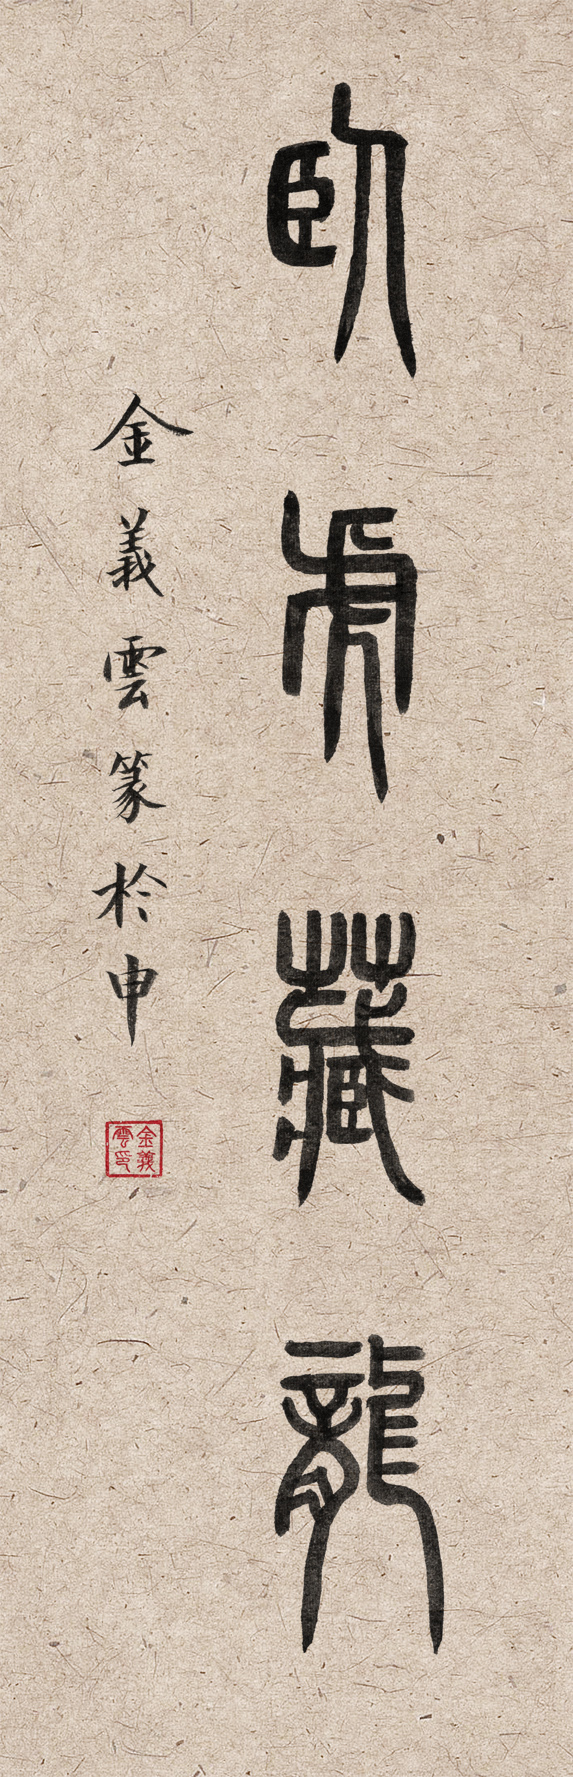 臥虎藏龍
金義雲篆於申
金義雲印